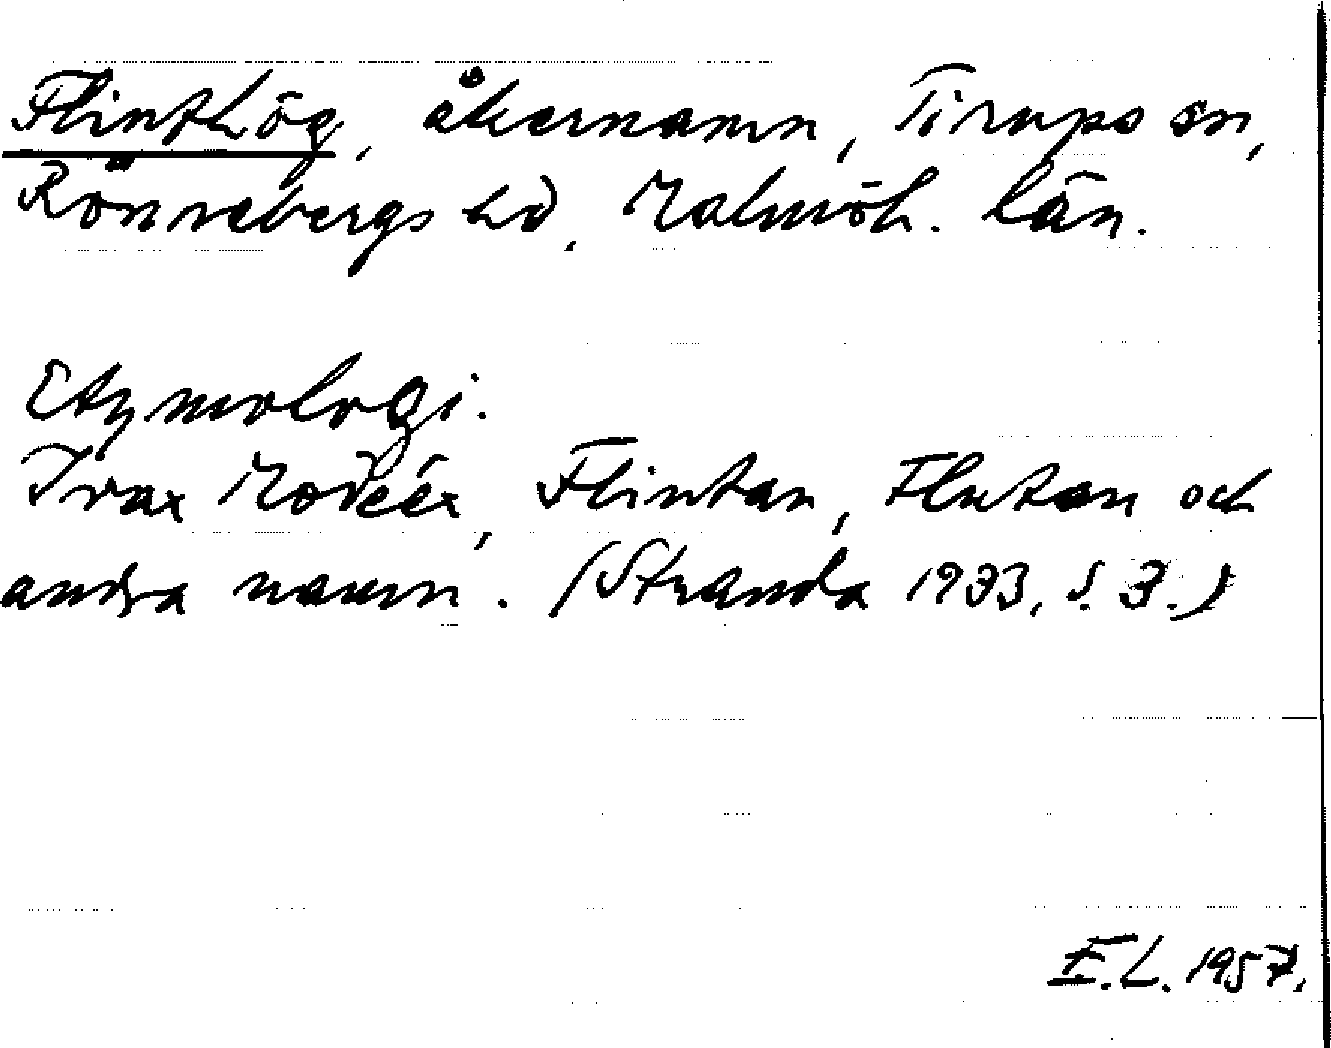 Flinthög, åkernamn, Tirups sn,
Rönnebergs hd, Malmöh. län.
Etymologi.
Ivar Modéer, Flintan, Flutan och
andra namn. (Stranda 1933, s. 3.)
E.L. 1957.